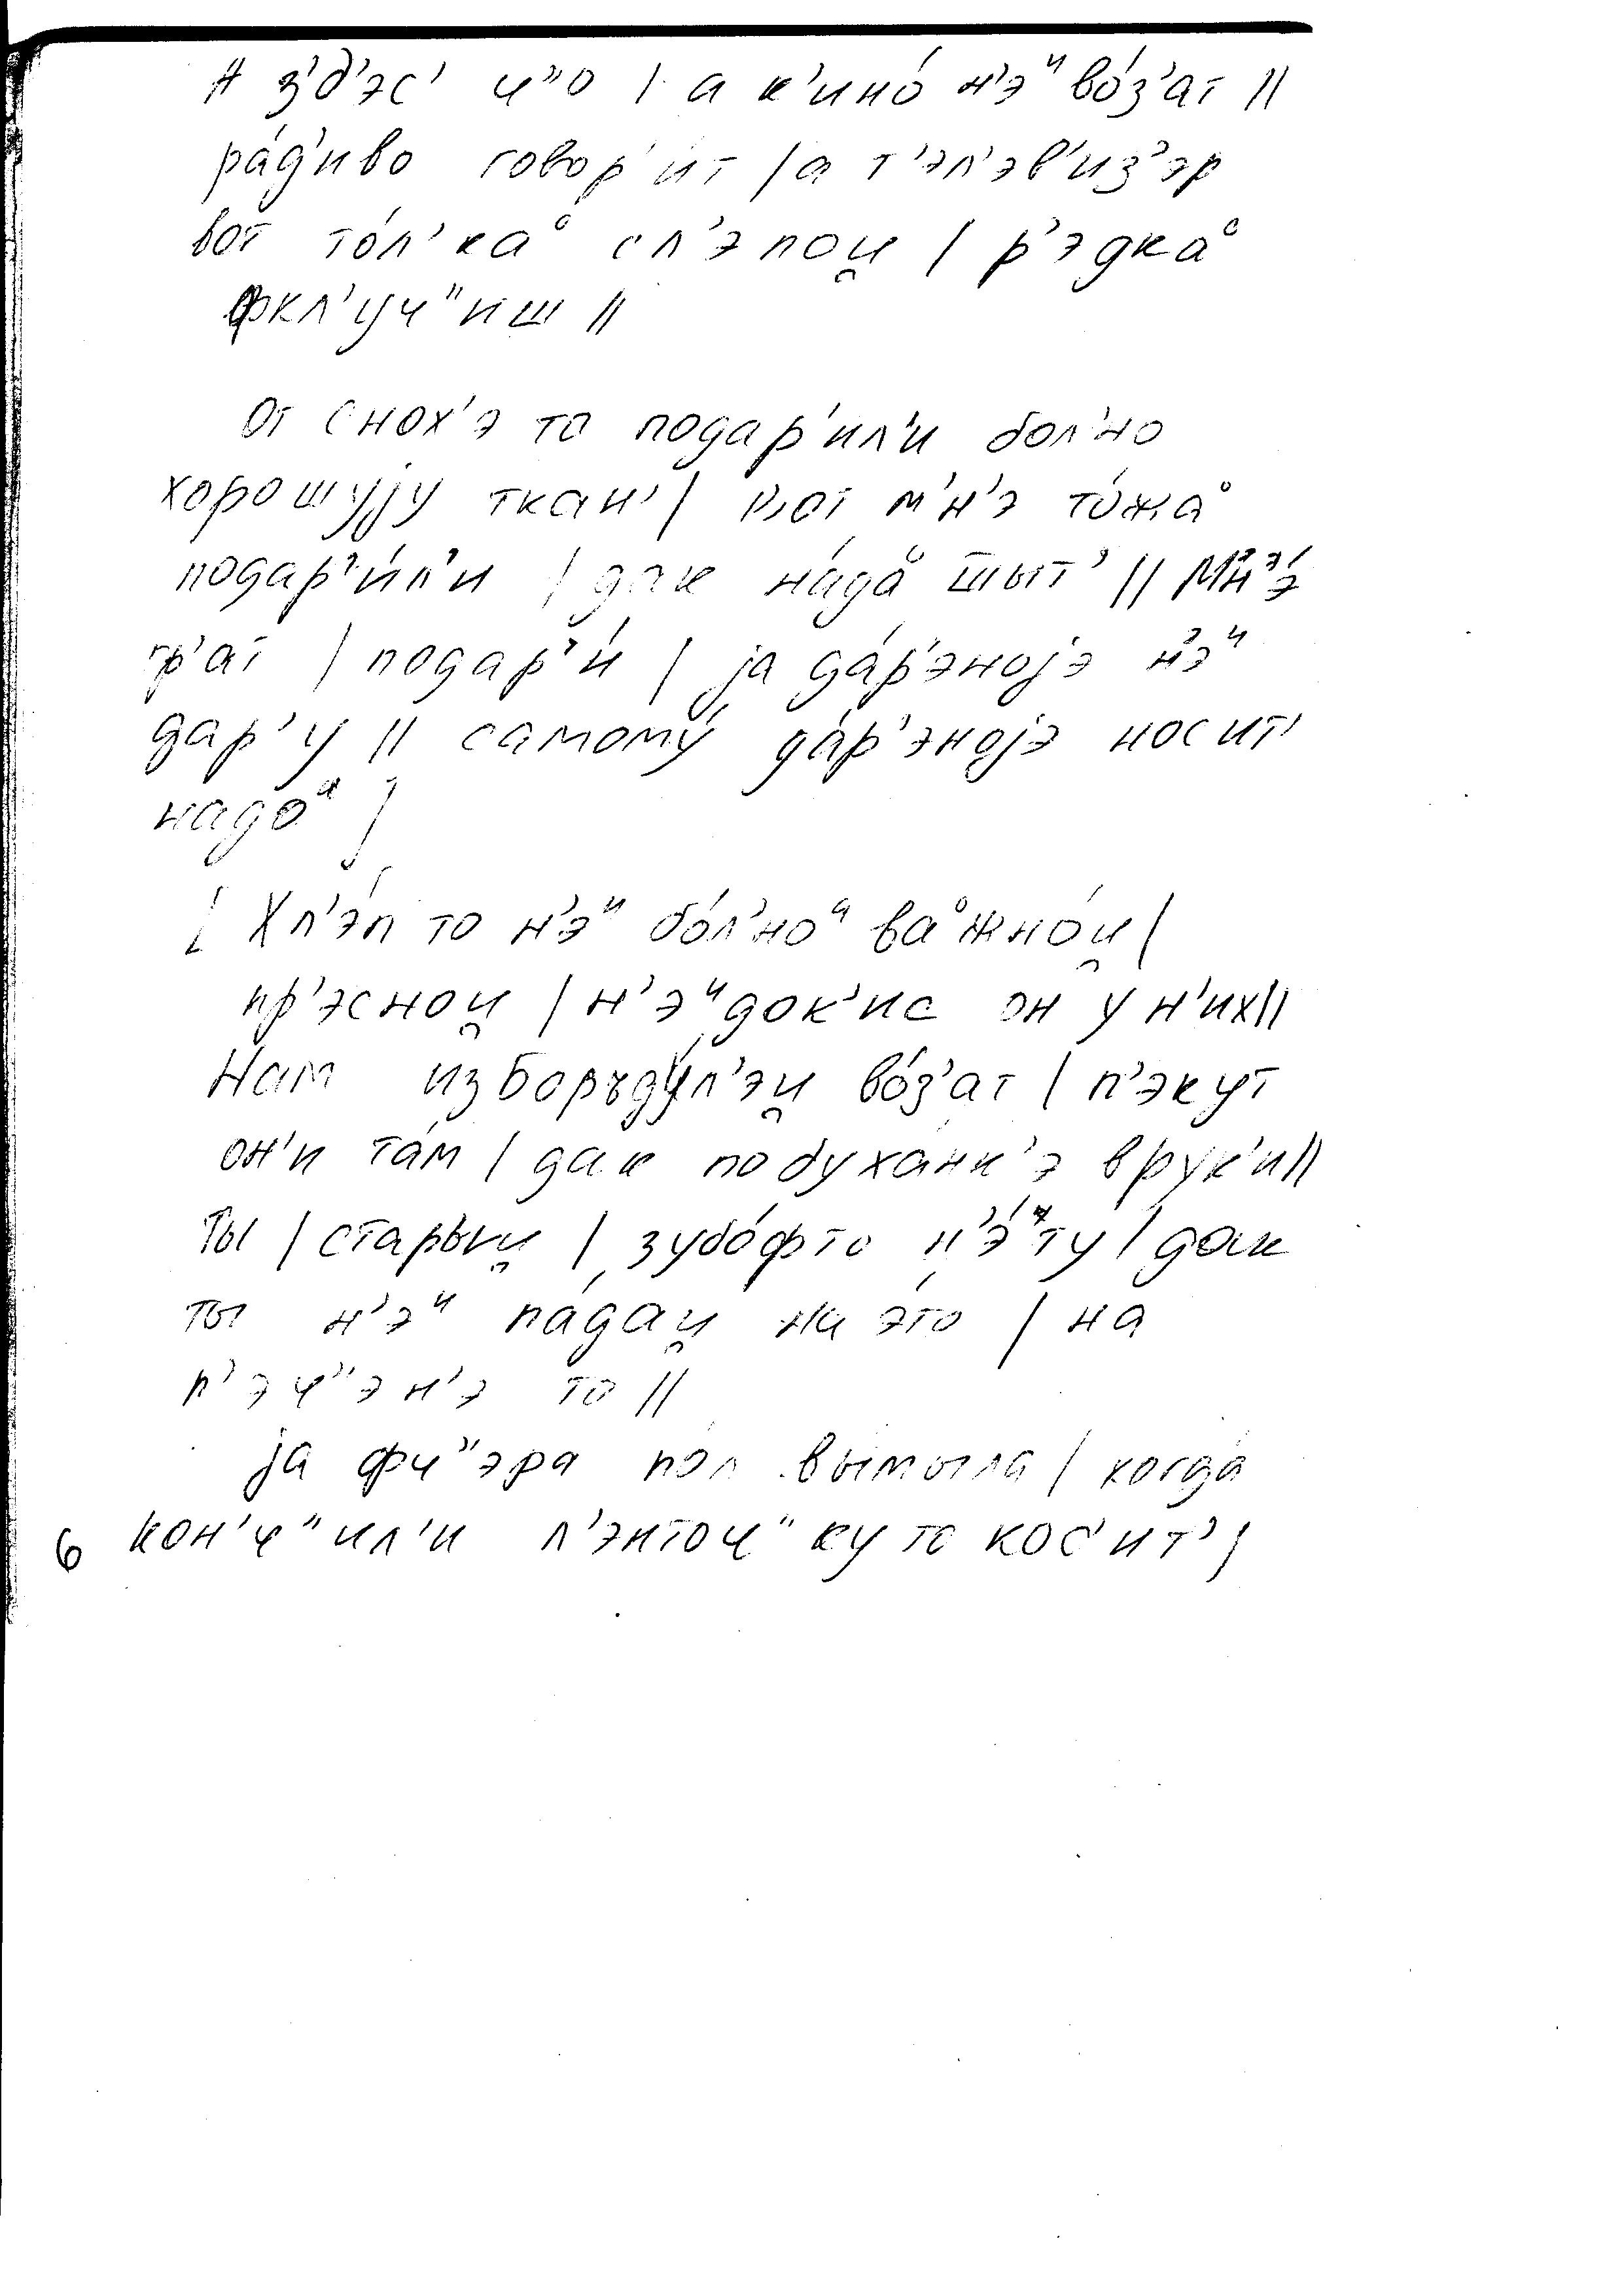 А з'д'эс' ч"о | а к'ино́ н'эᵘ во́з'ат ||
ра́д'иво говор'ит | а т'эл'эв'из'эр
вот то́л'каᵒ сл'эпои̯ | р'э́дкаᵒ
фкл'уч"иш ||
От снох'э то подар'ил'и бол'но
хорошуjу ткан' | вот м'н'э то́жаᵒ
подар'и́л'и | дак на́даᵒ шыт' || Мн'э́
гр'ат | подар'и́ | jа да́р'эноjэ н'эᵘ
дар'у || самому́ да́р'эноjэ носит'
надоᵃ ]
[ Хл'э́п то н'эᵘ бо́л'ноᵃ ваᵒжно́и̯ |
пр'эснои̯ | н'эᵘдок'ис он у н'их ||
Нам из Боръдул'эи̯ во́з'ат | п'экут
он'и та́м | дак по буха́нк'э в рук'и ||
Ты | старыи̯ | зубо́фто н'э́ту | дак
ты н'эᵘ па́даи̯ на э́то | на
п'эч"эн'э то ||
jа фч"эра пол вымыла | когда́
6 кон'ч"ил'и л'энточ"ку то кос'ит' |